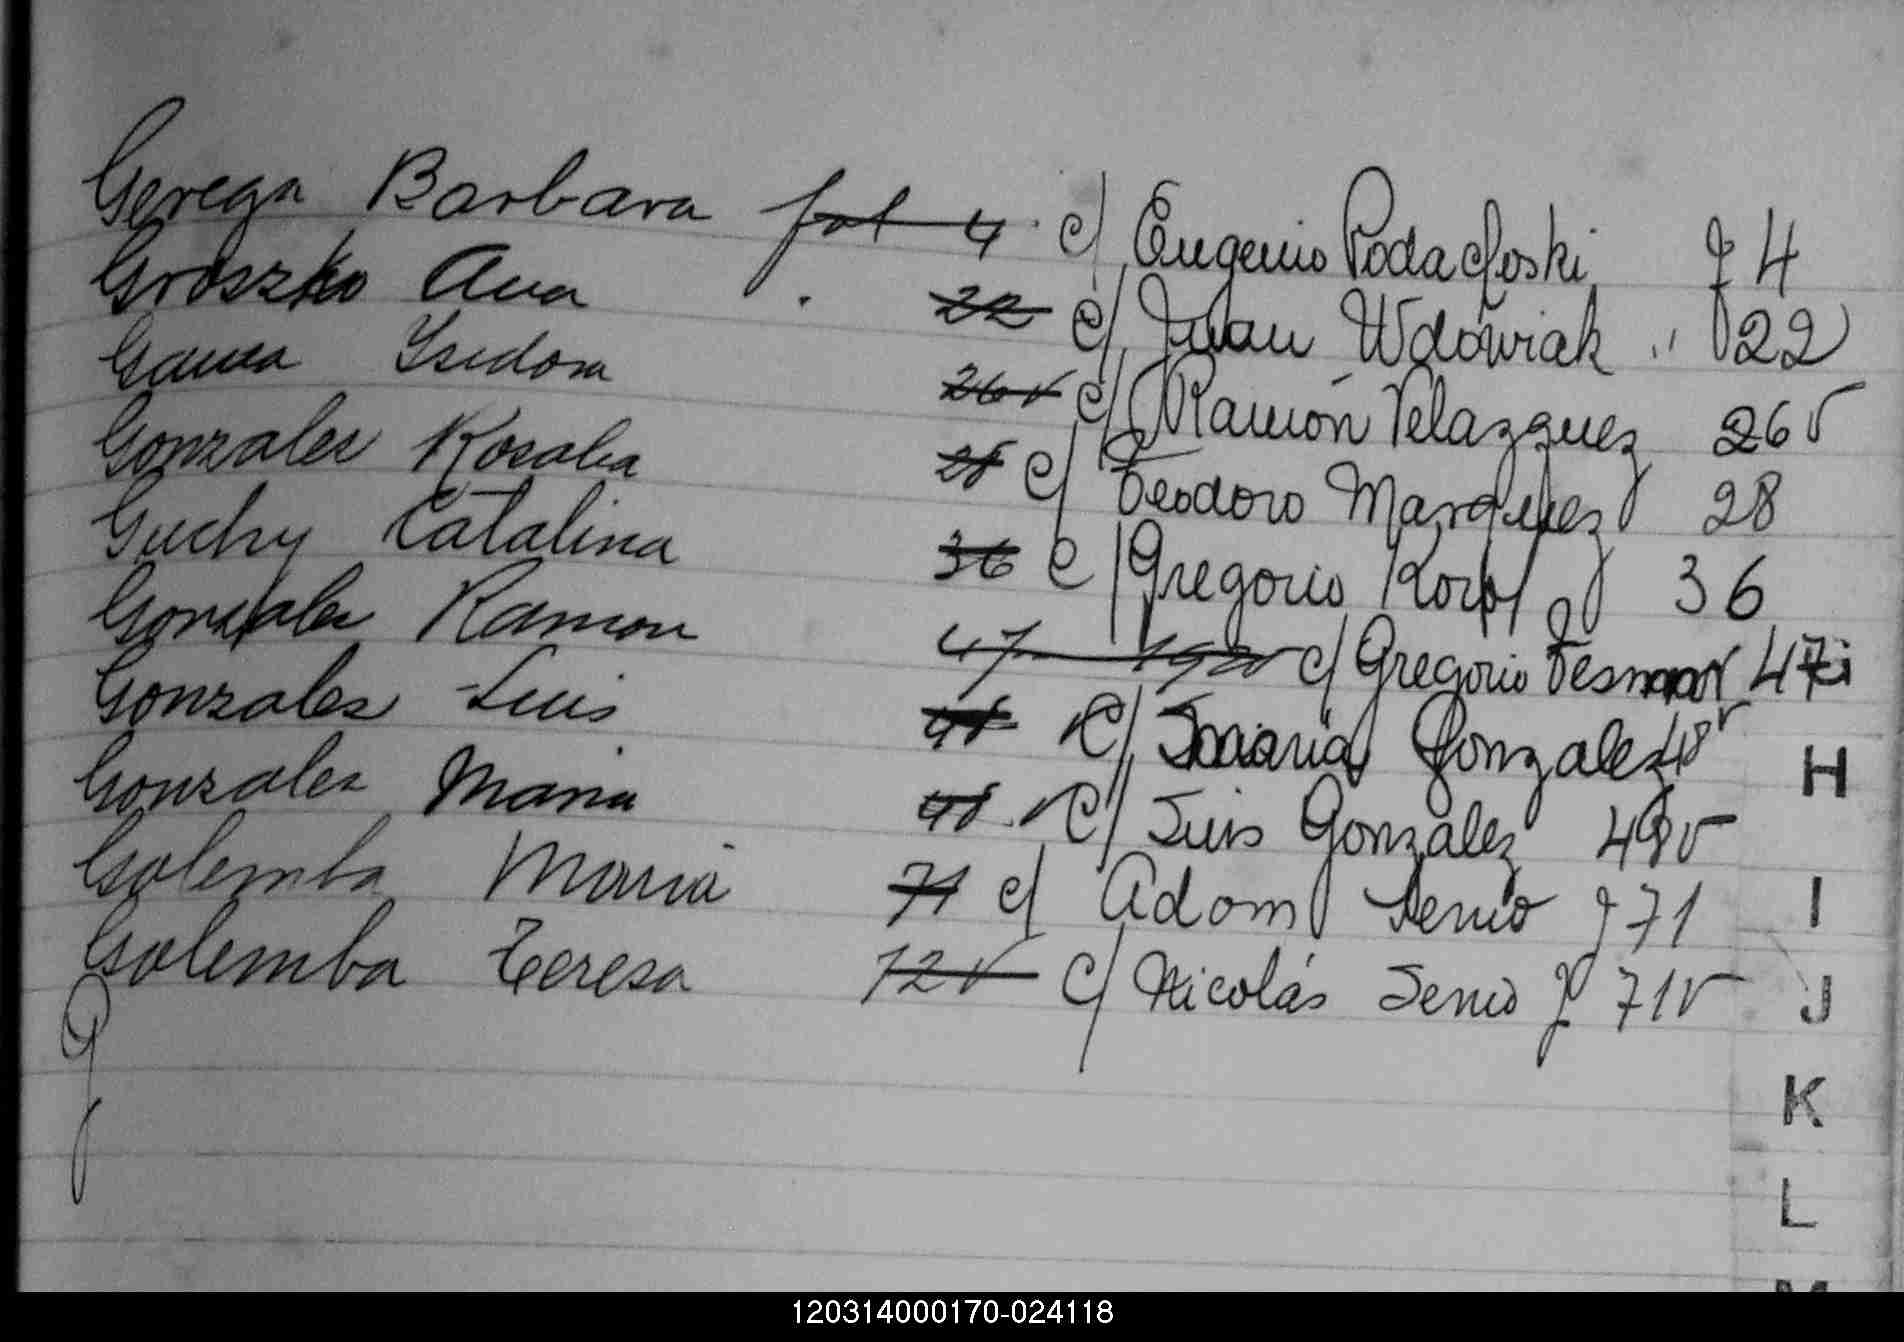 Gerega Barbara fol 4 c/ Eugenio Poda f 4
Groszko Ana 22 c/ Juan Wdowiak " 22
Isidora 26 v c/ Ramón Velazquez 26 v
Gonzalez Rosalia 28 c/ Teodoro Marquez 28
Guchy Catalina 36 c/ Gregorio 36
Gonzalez Ramon 47 c/ Gregorio 47
Gonzales Luis 48 v c/ Maria Gonzalez 48 v
Gonzalez Maria 48 v c/ Luis Gonzalez 48 v
Golemba Maria 71 c/ Adam Senio f 71
Golemba Teresa 72 v c/ Nicolás Senio f 71 v
H
I
J
K
L
120314000170-024118